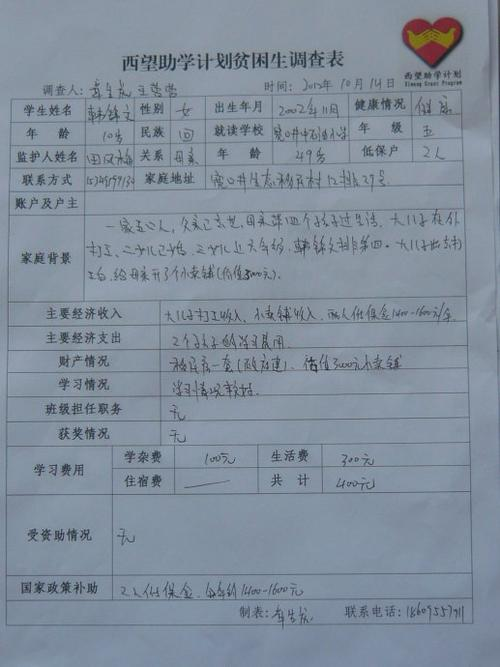 西望助学计划贫困生调查表
西望助学计划
Xiwang Grant Program
调查人: 时间: 2012年10月14日
学生姓名 韩锦文 性别 女 出生年月 2002年11月 健康情况 健康
年龄 10岁 民族 回 就读学校 年级 五
监护人姓名 田风梅 关系 母亲 年龄 49岁 低保户 2人
联系方式 家庭住址 生态移民村12排27号
账户及户主
家庭背景 一家五口人,父亲已去世,母亲带四个孩子过生活,大儿子在外
打工,二女儿已出嫁,三女儿上大学,韩锦文排第四。大儿子出去打
工,给母亲开了个小卖铺(价值3000元)。
主要经济收入 大儿子打工收入、小卖铺收入、两人低保金1400-1600元/年
主要经济支出 2个孩子的学习费用
财产情况 移民房一套(政府建)、价值3000元小卖铺
学习情况 学习情况较好
班级担任职务 无
获奖情况 无
学习费用 学杂费 100元 生活费 300元
住宿费 —— 共计 400元
受资助情况 无
国家政策补助 2人低保金、每年约1400-1600元
制表: 联系电话: